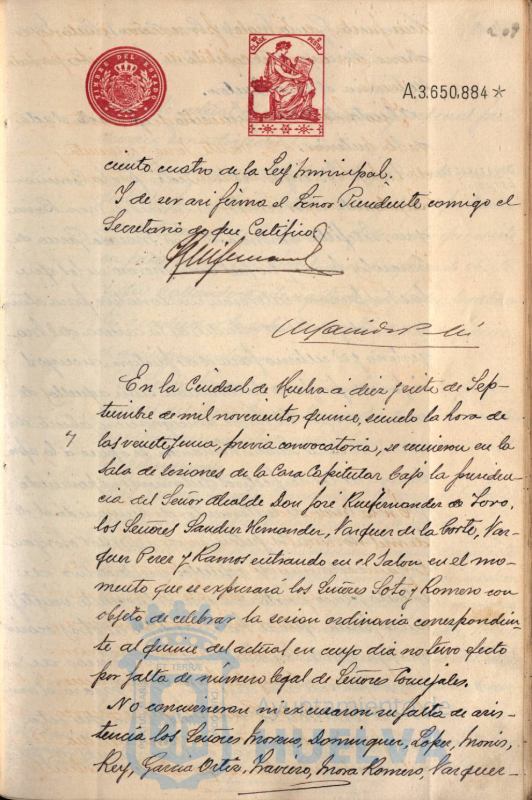 209
TIMBRE DEL ESTADO
A.3.650.884*
ciento cuatro de la Ley Municipal.
Y de ser asi firma el Señor Presidente conmigo el
Secretario de que Certifico.
En la Ciudad de Huelva á diez y siete de Sep-
tiembre de mil novecientos quince, siendo la hora de
las veinte y una, previa convocatoria, se reunieron en la
Sala de sesiones de la Casa Capitular bajo la presiden-
cia del Señor Alcalde Don José Ruifernandez de Toro,
los Señores Sanchez Hernandez, Vazquez de la Corte, Vaz-
quez Perez y Ramos entrando en el Salon en el mo-
mento que se expresará los Señores Soto y Romero con
objeto de celebrar la sesion ordinaria correspondien-
te al quince del actual en cuyo dia no tuvo efecto
por falta de número legal de Señores Concejales.
No concurrieron ni excusaron su falta de asis-
tencia los Señores Moreno, Dominguez, Lopez, Monis,
Rey, Garcia Ortiz, Traviero, Mora Romero, Vazquez-
Ayuntamiento de
HUELVA